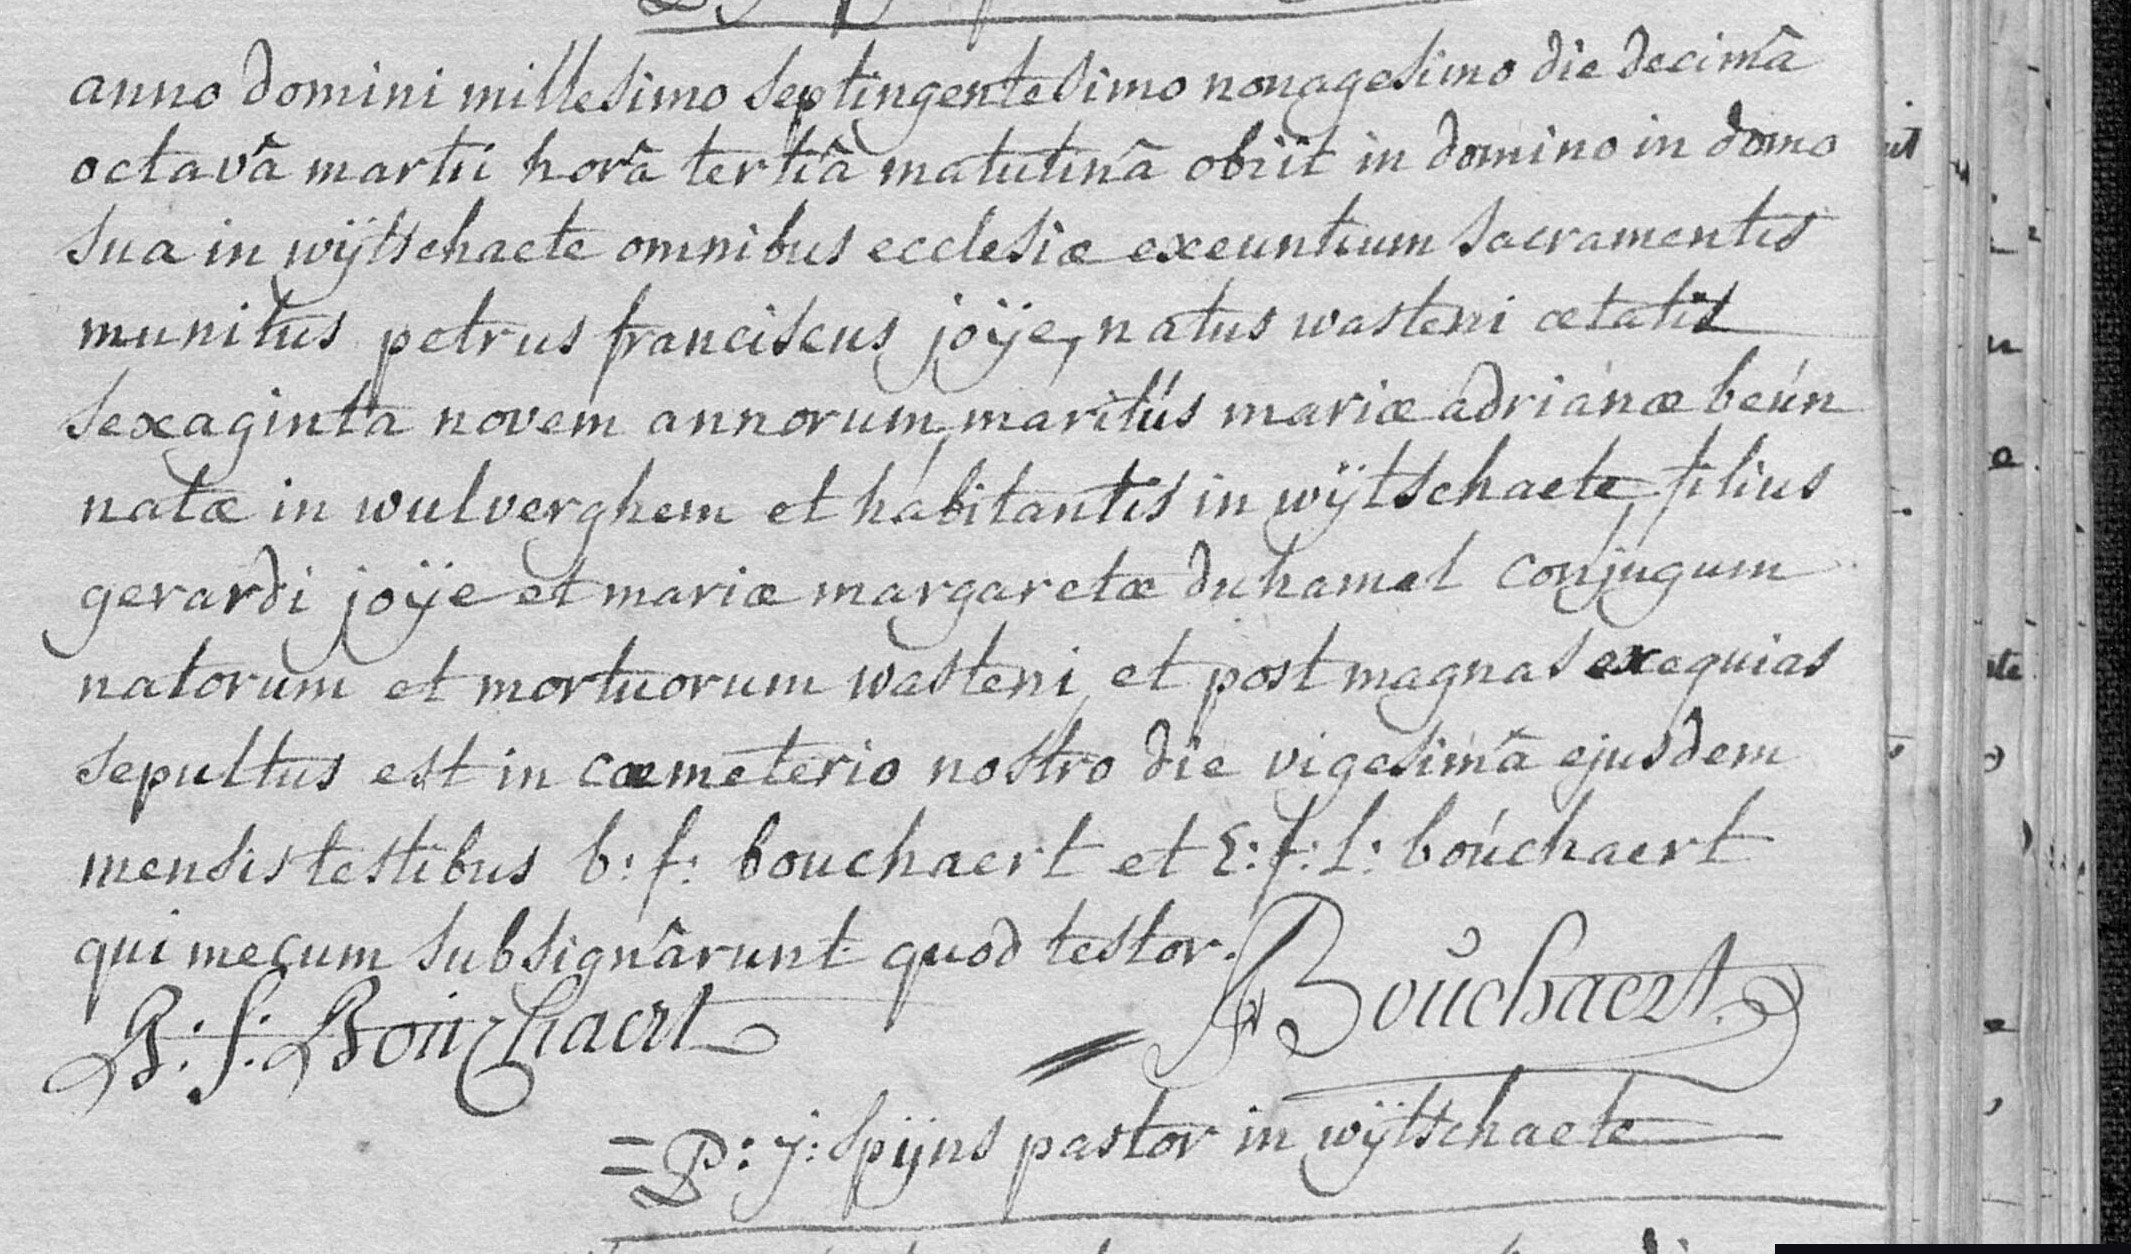 anno domini millesimo septingentesimo nonagesimo die decimâ
octavâ martii horâ tertiâ matutinâ obiit in domino in domo
sua in wÿtschaete omnibus ecclesiæ exeuntium sacramentis
munitus petrus franciscus joÿe, natus wasteni ætatis
sexaginta novem annorum, maritús mariæ adrianæ beún
natæ in wulverghem et habitantis in wÿtschaete filius
gerardi joÿe et mariæ margaretæ duhamel conjugum
natorum et mortuorum wasteni, et post magnas exequias
sepultus est in cæmeterio nostro die vigesimâ ejusdem
mensis testibus b: f: bouchaert et E: f: l: boúchaert
qui mecum subsignârunt quod testor.
B: f: Bouchaert Bouchaert
= P: j: spÿns pastor in wÿtschaete